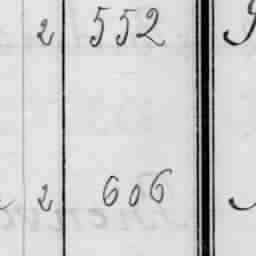 2 552
2 606